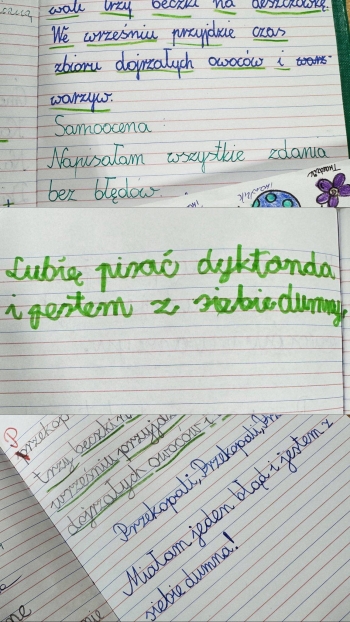 wali trzy beczki na deszczówkę.
We wrześniu przyjdzie czas
zbioru dojrzałych owoców i warz-
warzyw.
Samoocena
Napisałam wszystkie zdania
bez błędów.
Lubię pisać dyktanda
i jestem z siebie dumny.
P
przekop
trzy beczki n
wrześniu przyjd
dojrzałych owoców i
Przekopali, Przekopali, Prz
Miałam jeden błąd i jestem z
siebie dumna!